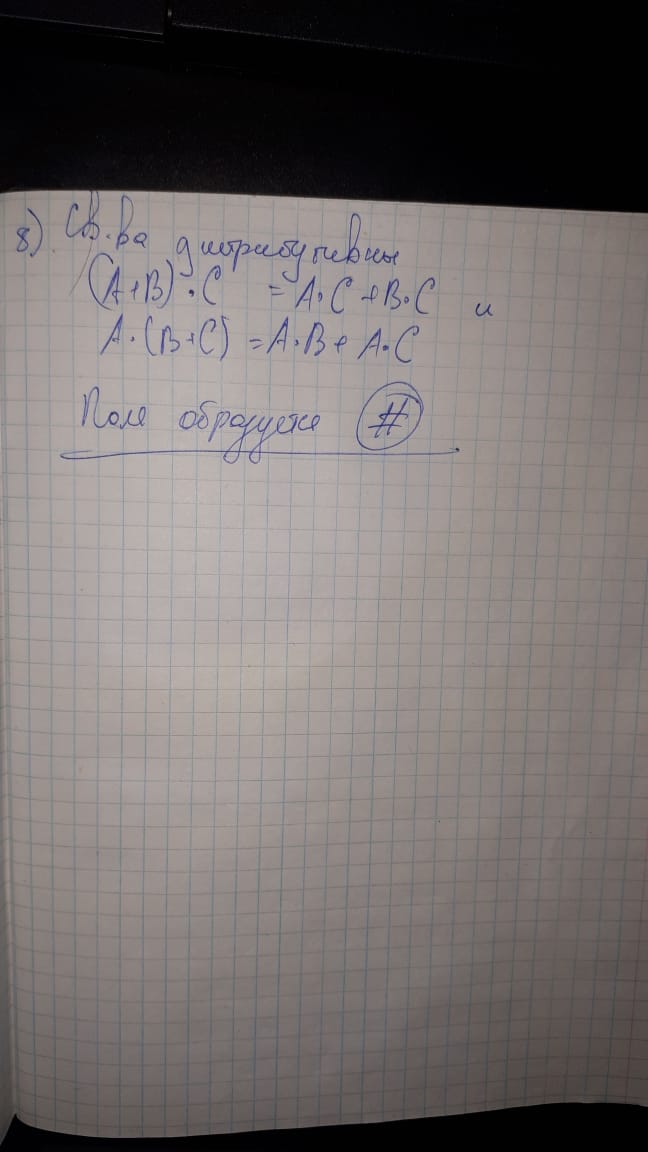 8) Св-ва дистрибутивны
(A+B)·C = A·C+B·C и
A·(B+C) = A·B+A·C
Поле образуется #